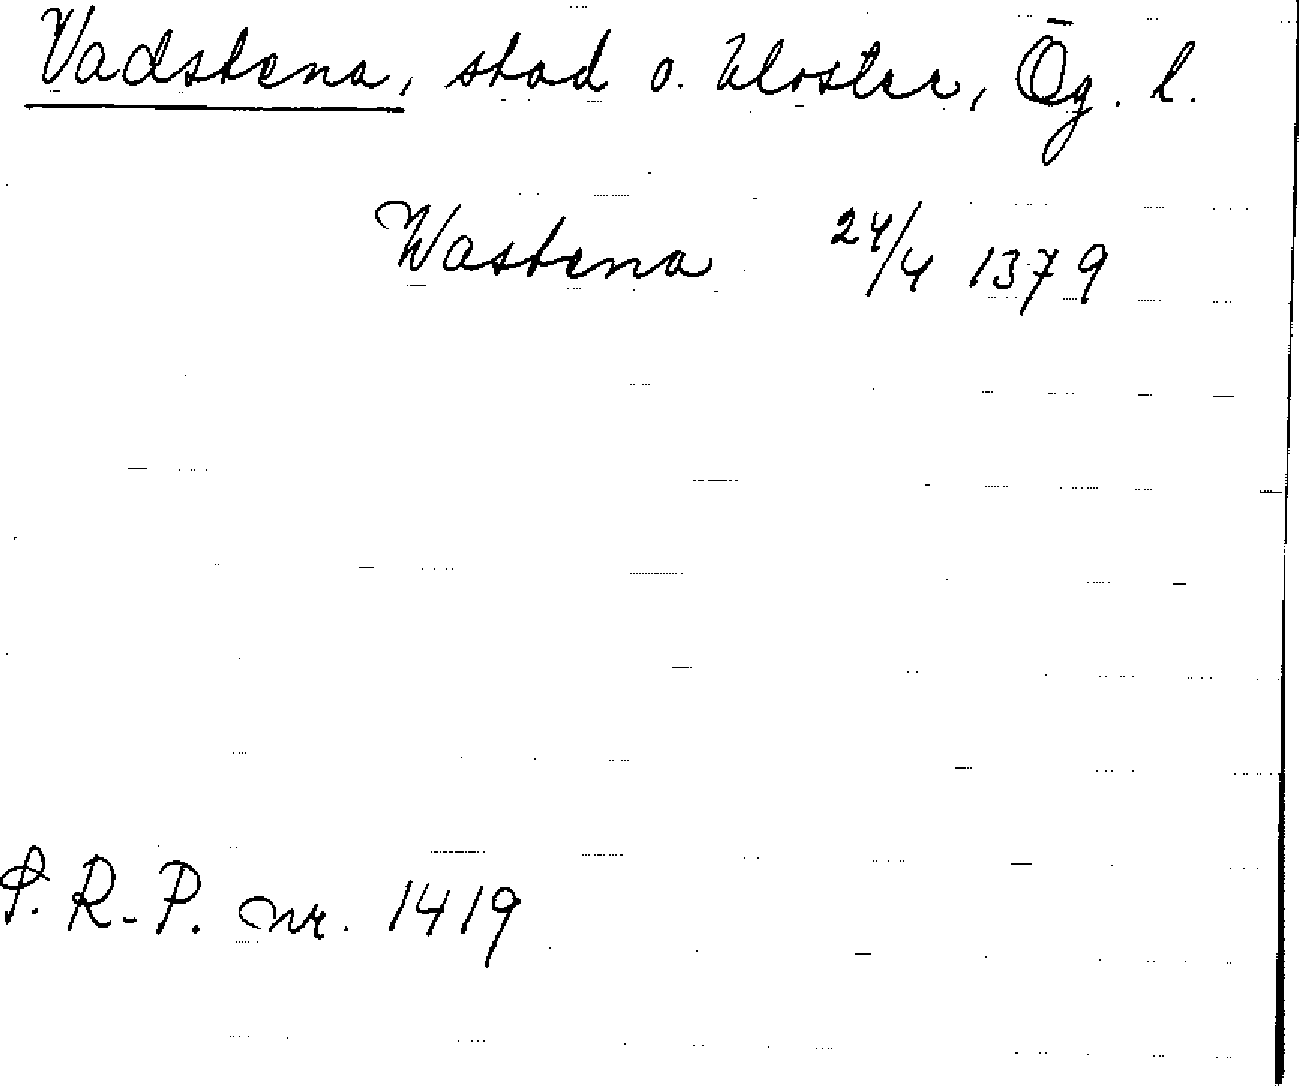 Vadstena, stad o. kloster, Ög. l.
Wastena 24/4 1379
P. R-P. nr. 1419